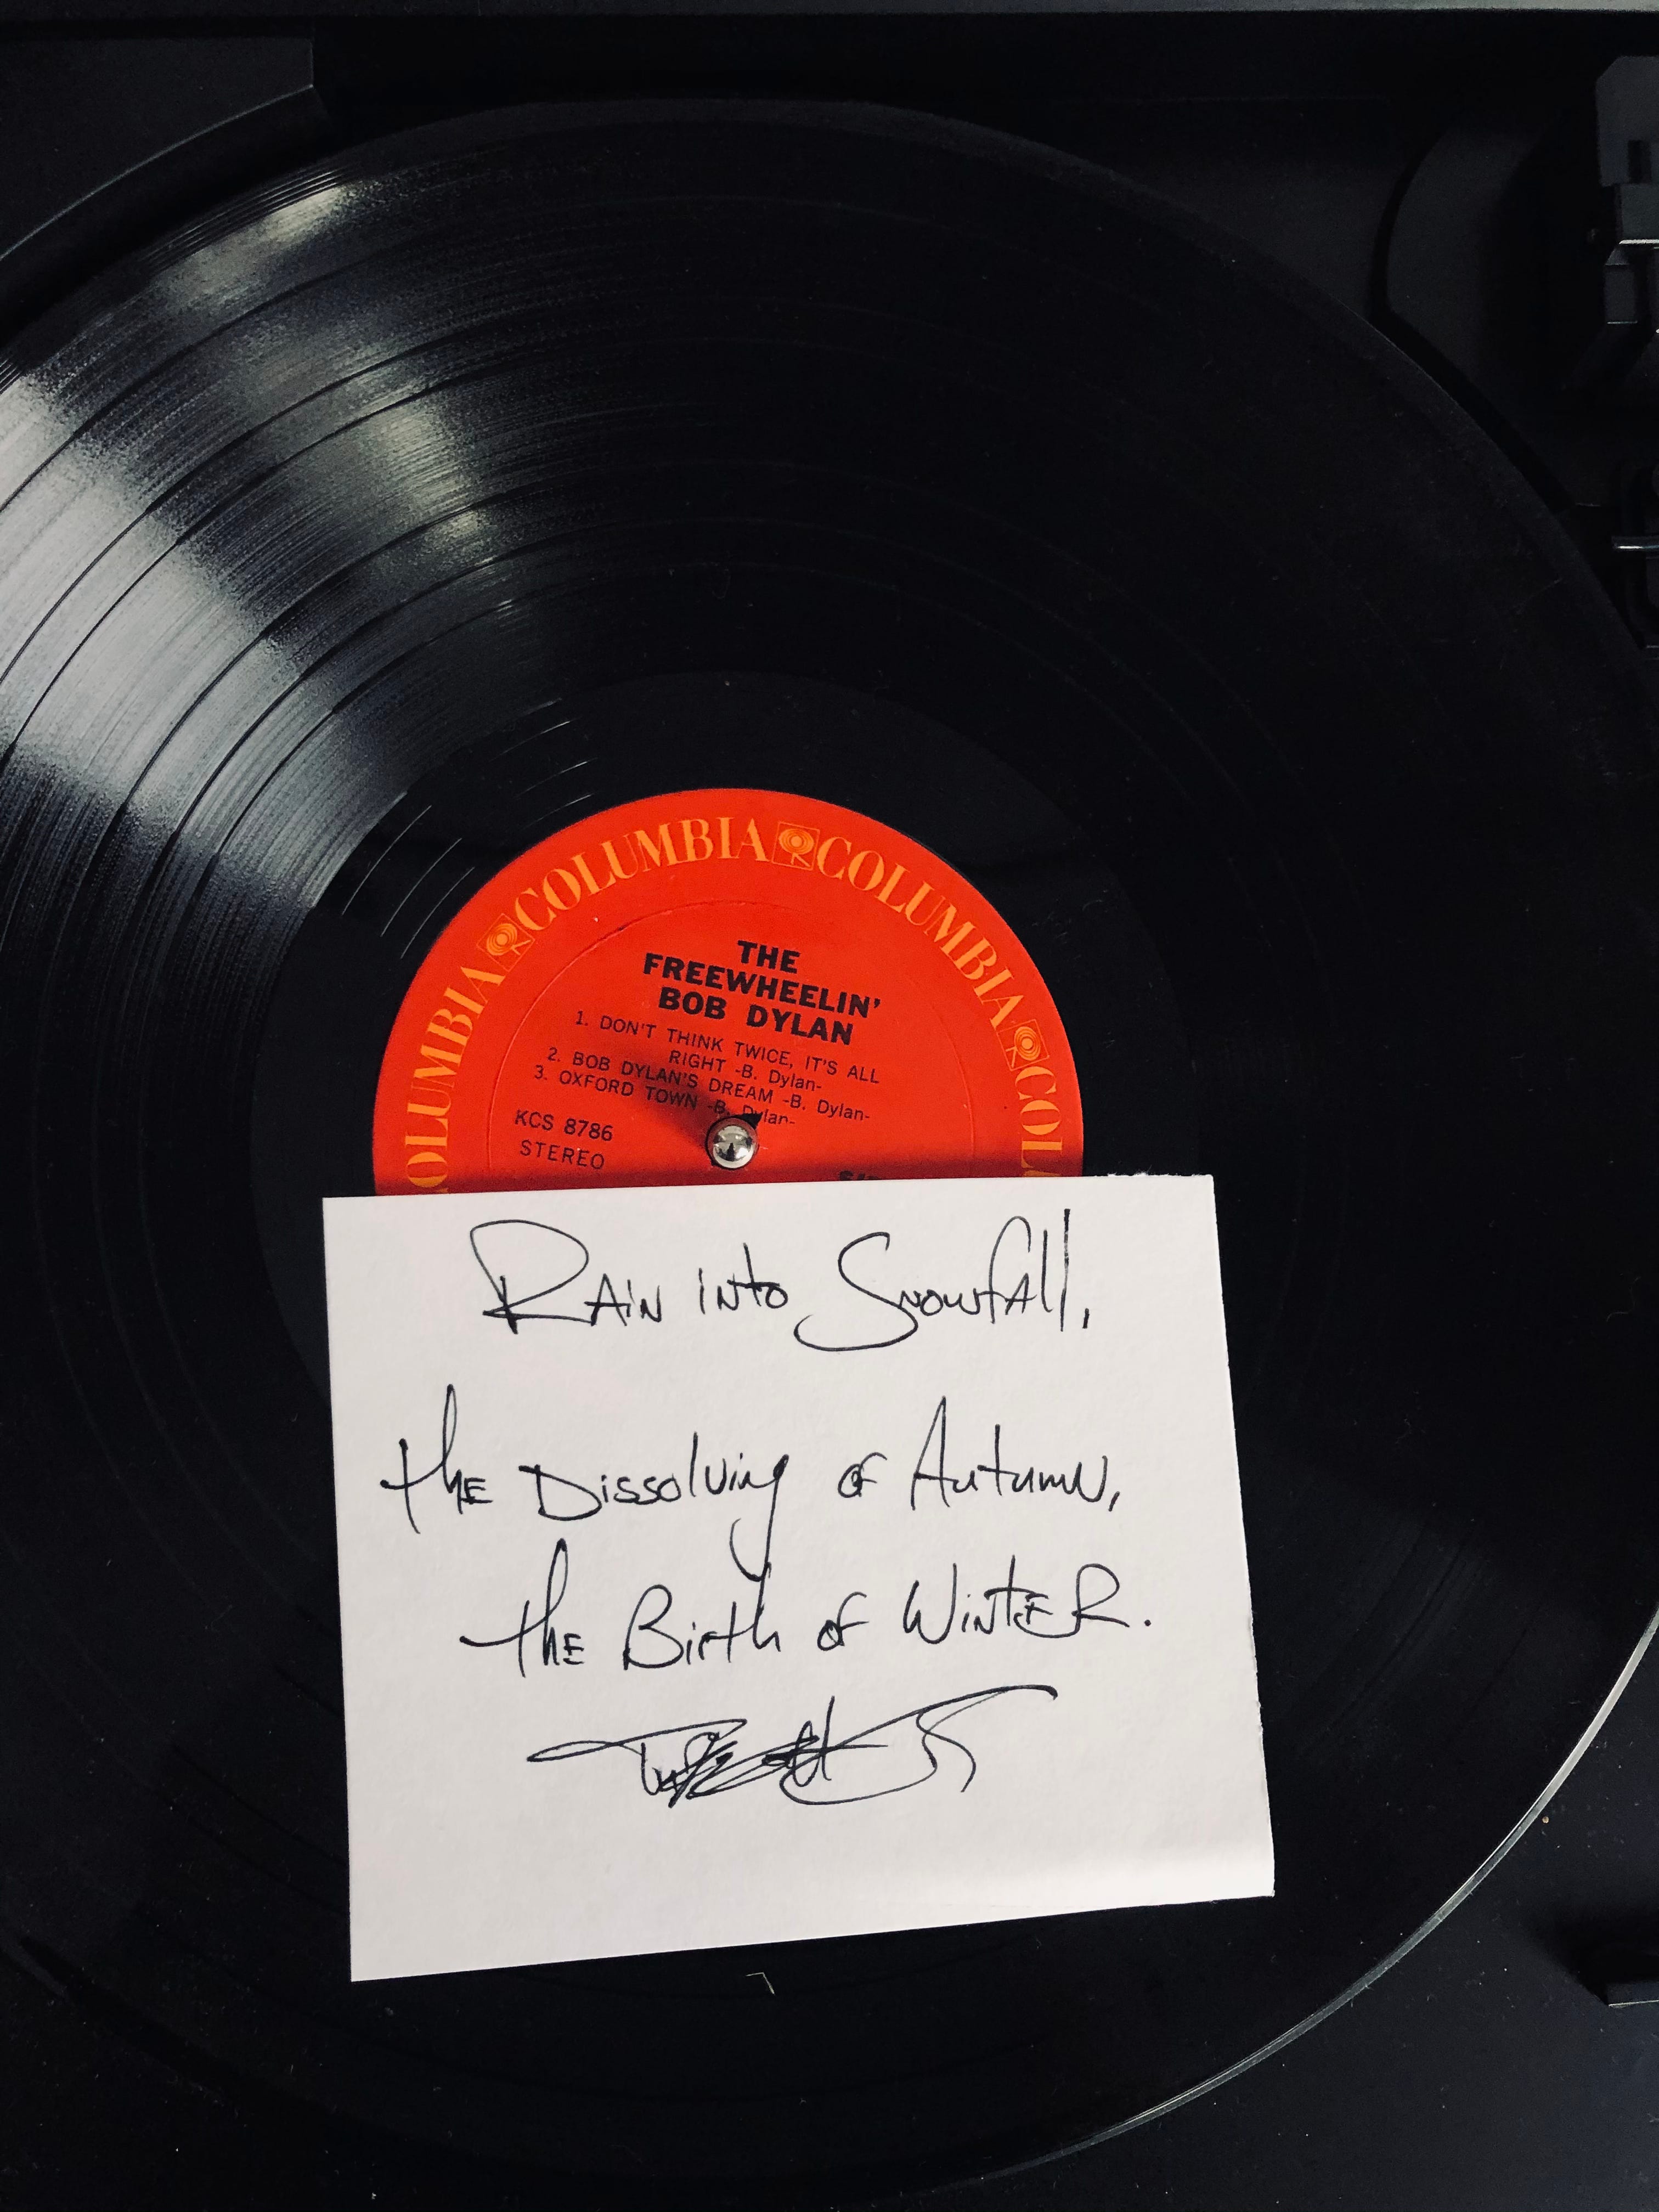 COLUMBIA COLUMBIA COLUMBIA COL
THE
FREEWHEELIN'
BOB DYLAN
1. DON'T THINK TWICE, IT'S ALL
RIGHT -B. Dylan-
2. BOB DYLAN'S DREAM -B. Dylan-
3. OXFORD TOWN -B. Dylan-
KCS 8786
STEREO
Rain into Snowfall,
the Dissolving of Autumn,
the Birth of Winter.